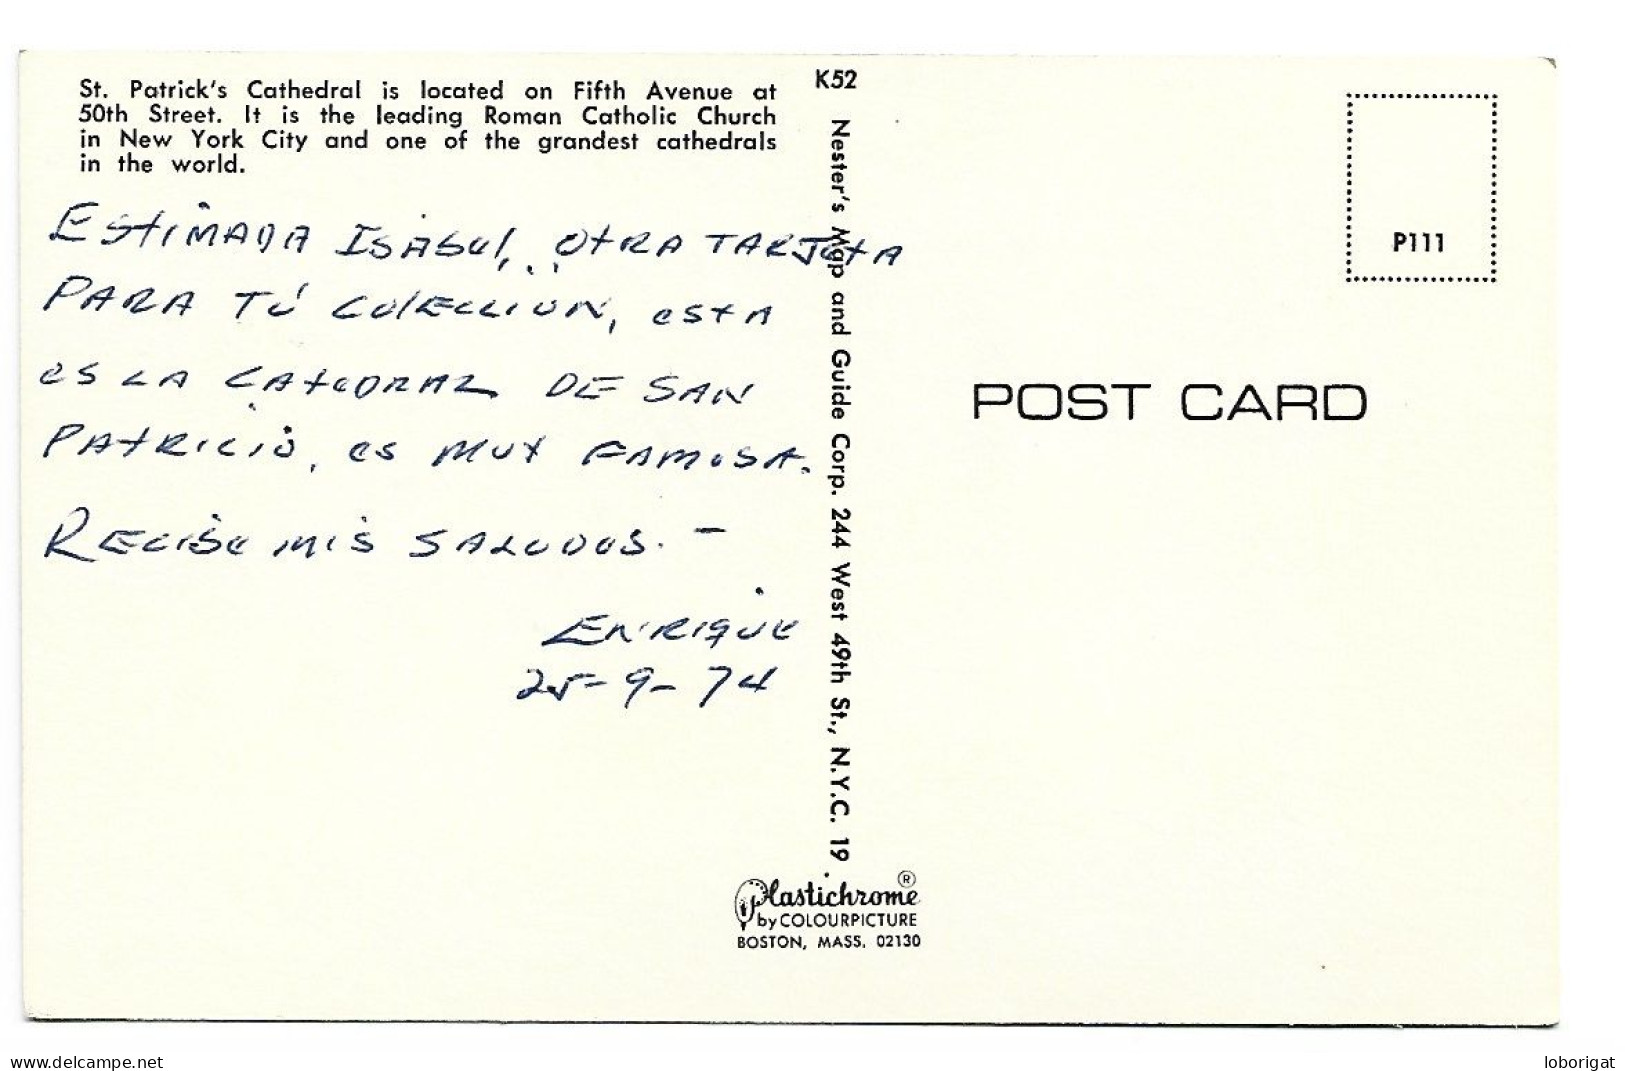 St. Patrick's Cathedral is located on Fifth Avenue at
50th Street. It is the leading Roman Catholic Church
in New York City and one of the grandest cathedrals
in the world.
ESTIMADA ISABEL, OTRA TARJETA
PARA TÚ COLECCION, ESTA
ES LA CATEDRAL DE SAN
PATRICIO, ES MUY FAMOSA.
RECIBE MIS SALUDOS. -
ENRIQUE
25-9-74
K52
Nester's Map and Guide Corp. 244 West 49th St., N.Y.C. 19
Plastichrome ®
by COLOURPICTURE
BOSTON, MASS. 02130
P111
POST CARD
www.delcampe.net
loborigat